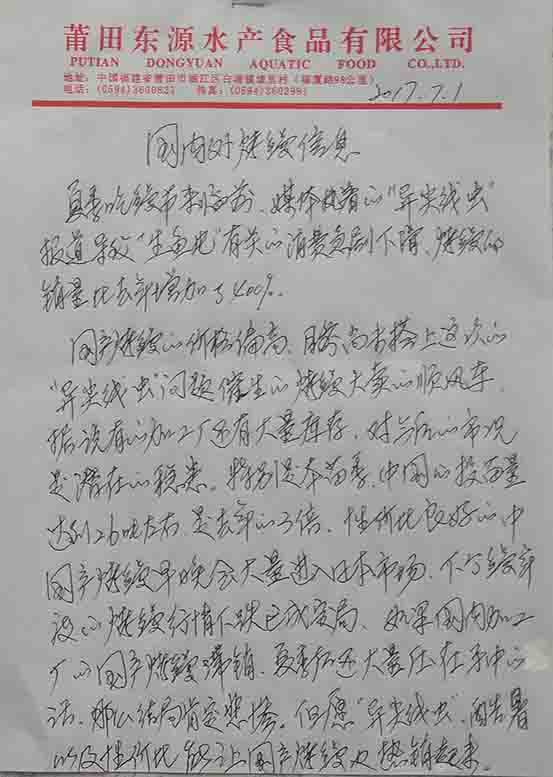 莆田东源水产食品有限公司
PUTIAN DONGYUAN AQUATIC FOOD CO.,LTD.
地址：中国福建省莆田市涵江区白塘镇埭里村（福厦路98公里）
电话：(0594)3600827 传真：(0594)3602991
2017.7.1
国内对烤鳗信息
夏季吃鳗节来临前、媒体热着的“异尖线虫”
报道导致“生鱼片”有关的消费急剧下降、烤鳗的
销量比去年增加了400%。
国产烤鳗的价格偏高、目前尚未搭上这次的
“异尖线虫”问题催生的烤鳗大卖的顺风车、
据说有的加工厂还有大量库存、对今后的市况
是潜在的隐患。特别是本苗季、中国的投苗量
达到26吨左右、是去年的3倍、性价比良好的中
国产烤鳗早晚会大量进入日本市场、
的烤鳗行情下跌已成定局、如果国内加工
厂的国产烤鳗滞销、夏季后还大量压在手中的
话、那么结局肯定悲惨。但愿“异尖线虫”、酷暑
以及性价比能让国产烤鳗也热销起来。